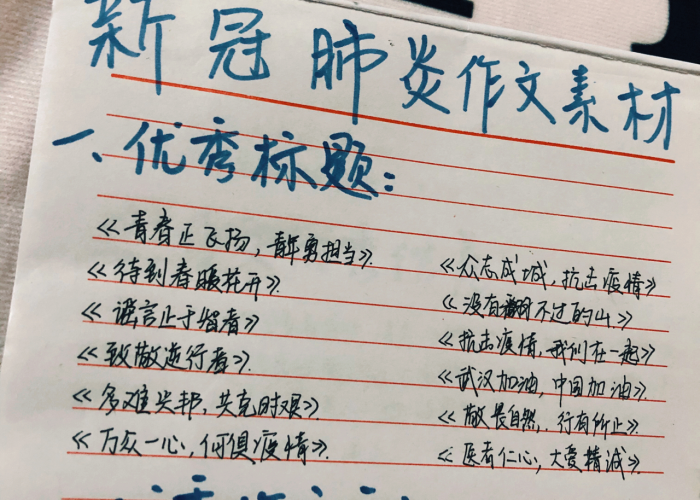 新冠肺炎作文素材
一、优秀标题:
《青春正飞扬,青年勇担当》
《待到春暖花开》
《谣言止于智者》
《致敬逆行者》
《多难兴邦,共克时艰》
《万众一心,何惧疫情》
《众志成城,抗击疫情》
《没有翻不过的山》
《抗击疫情,我们在一起》
《武汉加油,中国加油》
《敬畏自然,行有所止》
《医者仁心,大爱精诚》